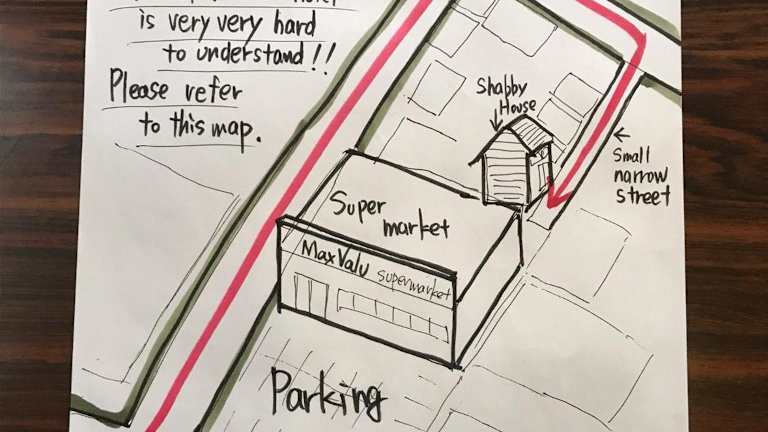 is very very hard
to understand!!
Please refer
to this map.
Shabby
House
Small
narrow
street
Super
market
MaxValu supermarket
Parking